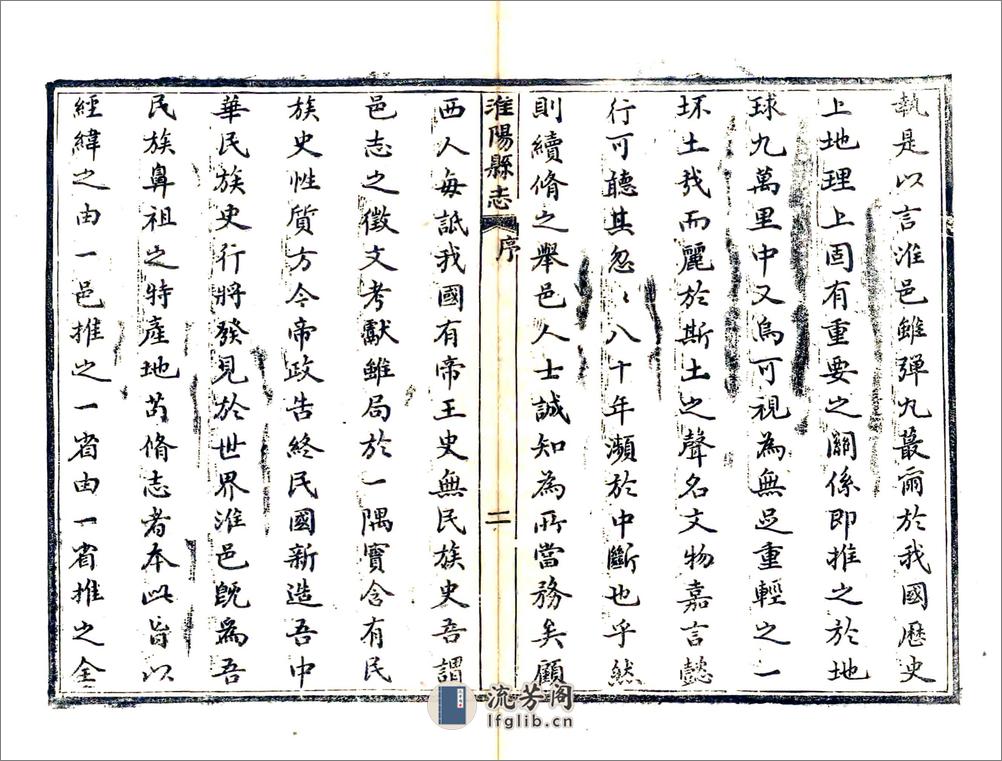 執是以言淮邑雖彈丸蕞爾於我國歷史
上地理上固有重要之關係即推之於地
球九萬里中又烏可視為無足重輕之一
坏土哉而麗於斯土之聲名文物嘉言懿
行可聽其忽〻八十年瀕於中斷也乎然
則續脩之舉邑人士誠知為所當務矣顧
淮陽縣志
序
二
西人每詆我國有帝王史無民族史吾謂
邑志之徵文考獻雖局於一隅實含有民
族史性質方今帝政告終民國新造吾中
華民族史行將發見於世界淮邑既為吾
民族鼻祖之特產地苟脩志者本此旨以
經緯之由一邑推之一省由一省推之全
流芳阁
lfglib.cn